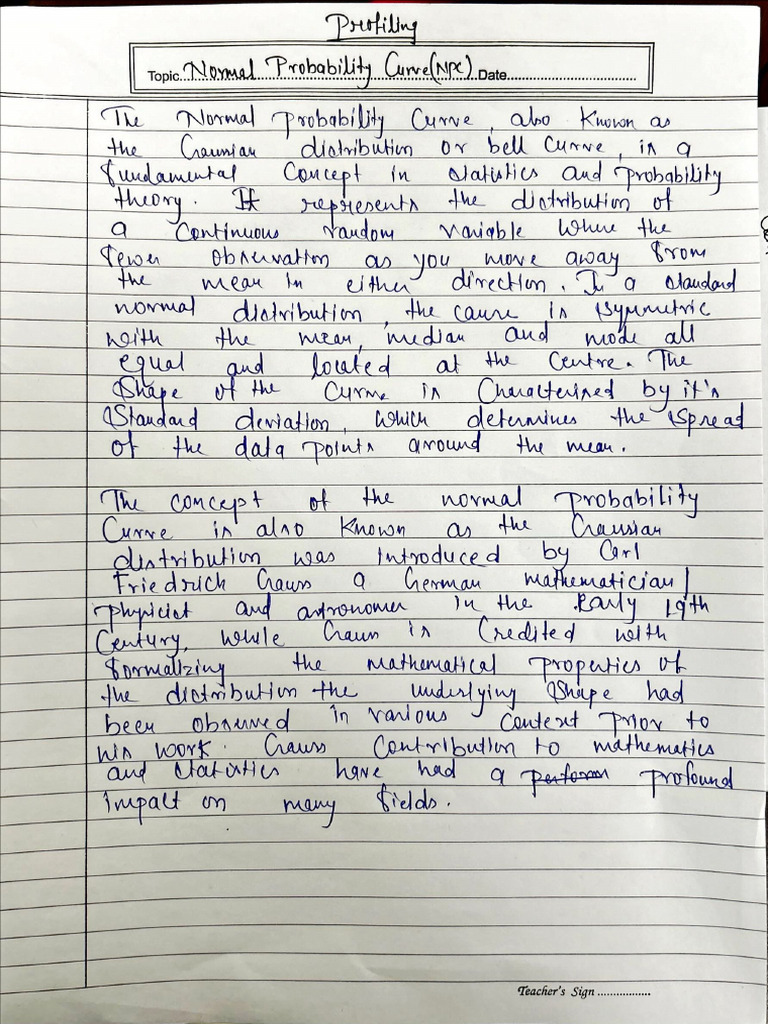 Profiling
Topic Normal Probability Curve (NPC) Date
The Normal Probability Curve, also known as
the Gaussian distribution or bell curve, is a
fundamental concept in statistics and probability
theory. It represents the distribution of
a continuous random variable where the
fewer observation as you move away from
the mean in either direction. In a standard
normal distribution, the cause is symmetric
with the mean, median and mode all
equal and located at the centre. The
Shape of the curve is characterised by it's
Standard deviation, which determines the spread
of the data points around the mean.
The concept of the normal probability
Curve is also known as the Gaussian
distribution was introduced by Carl
Friedrick Gauss a German mathematician/
physicist and astronomer in the Early 19th
Century, while Gauss is credited with
formalizing the mathematical properties of
the distribution the underlying Shape had
been observed in various context prior to
his work. Gauss contribution to mathematics
and statistics have had a perform profound
impact on many fields.
Teacher's Sign